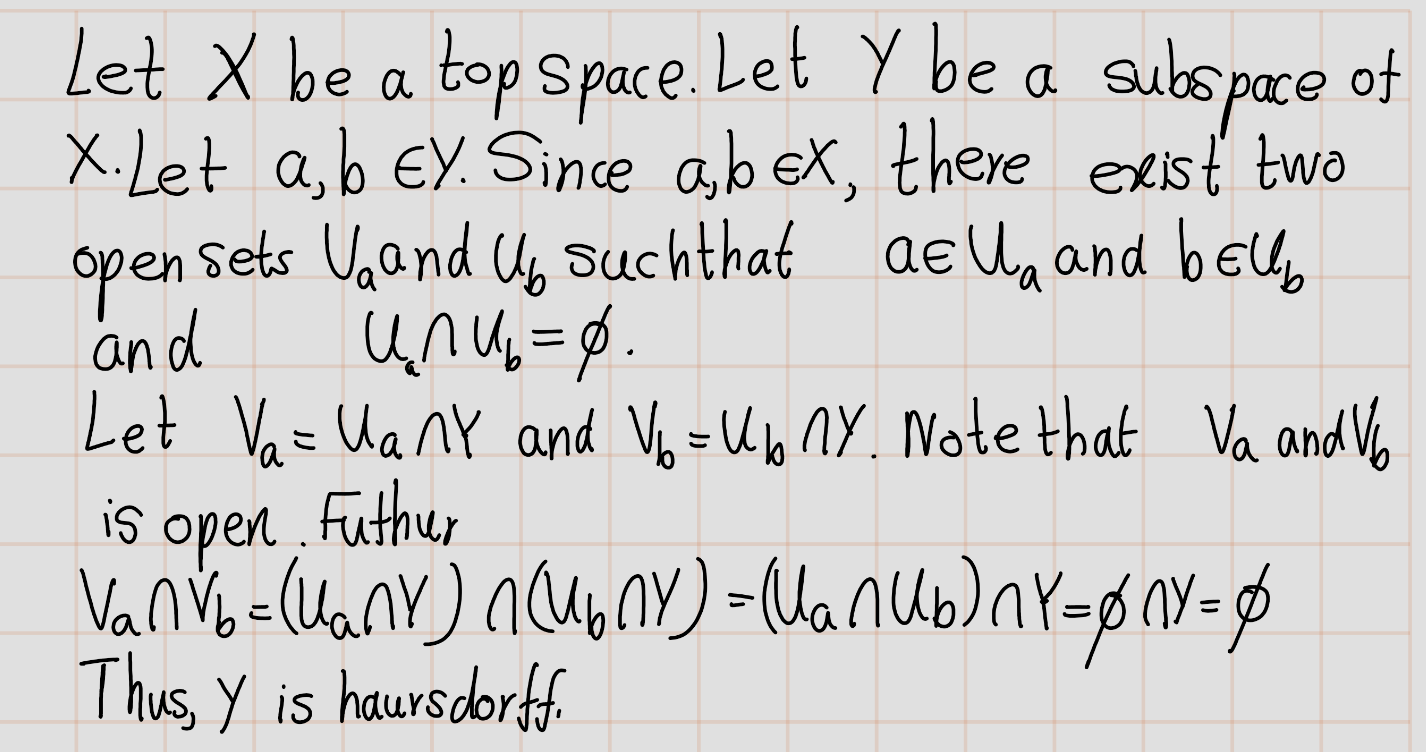 Let X be a top space. Let Y be a subspace of
X. Let a,b ∈Y. Since a,b ∈X, there exist two
open sets Ua and Ub such that a∈Ua and b∈Ub
and Ua∩Ub=∅.
Let Va=Ua∩Y and Vb=Ub∩Y. Note that Va and Vb
is open. Futhur
Va∩Vb=(Ua∩Y)∩(Ub∩Y)=(Ua∩Ub)∩Y=∅∩Y=∅
Thus, Y is haursdorff.